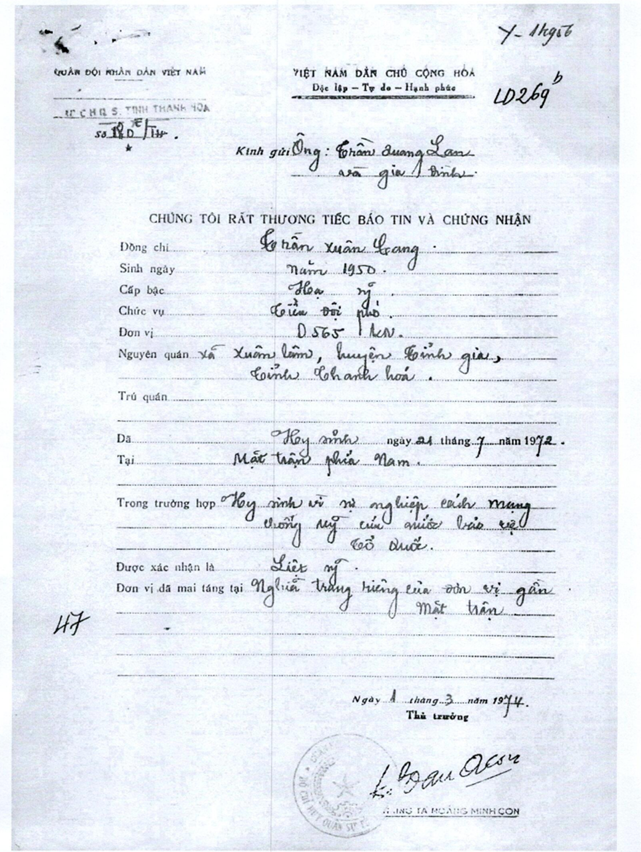 QUÂN ĐỘI NHÂN DÂN VIỆT NAM
VIỆT NAM DÂN CHỦ CỘNG HÒA
Độc lập - Tự do - Hạnh phúc
LD269b
TỈNH THANH HÓA
Số
Kính gửi Ông: Trần Quang Lan
và gia đình.
CHÚNG TÔI RẤT THƯƠNG TIẾC BÁO TIN VÀ CHỨNG NHẬN
Đồng chí Trần Xuân Cang.
Sinh ngày năm 1950.
Cấp bậc Hạ sỹ.
Chức vụ Tiểu đội phó.
Đơn vị D565
Nguyên quán xã Xuân lâm, huyện Tỉnh gia,
Tỉnh Thanh hoá.
Trú quán
Đã Hy sinh ngày 21 tháng 7 năm 1972.
Tại Mặt trận phía Nam.
Trong trường hợp Hy sinh vì sự nghiệp cách mạng
chống mỹ cứu nước bảo vệ
Tổ quốc.
Được xác nhận là Liệt sỹ.
Đơn vị đã mai táng tại Nghĩa trang riêng của đơn vị gần
Mặt trận
47
Ngày 1 tháng 3 năm 1974.
Thủ trưởng
HOÀNG MINH CON